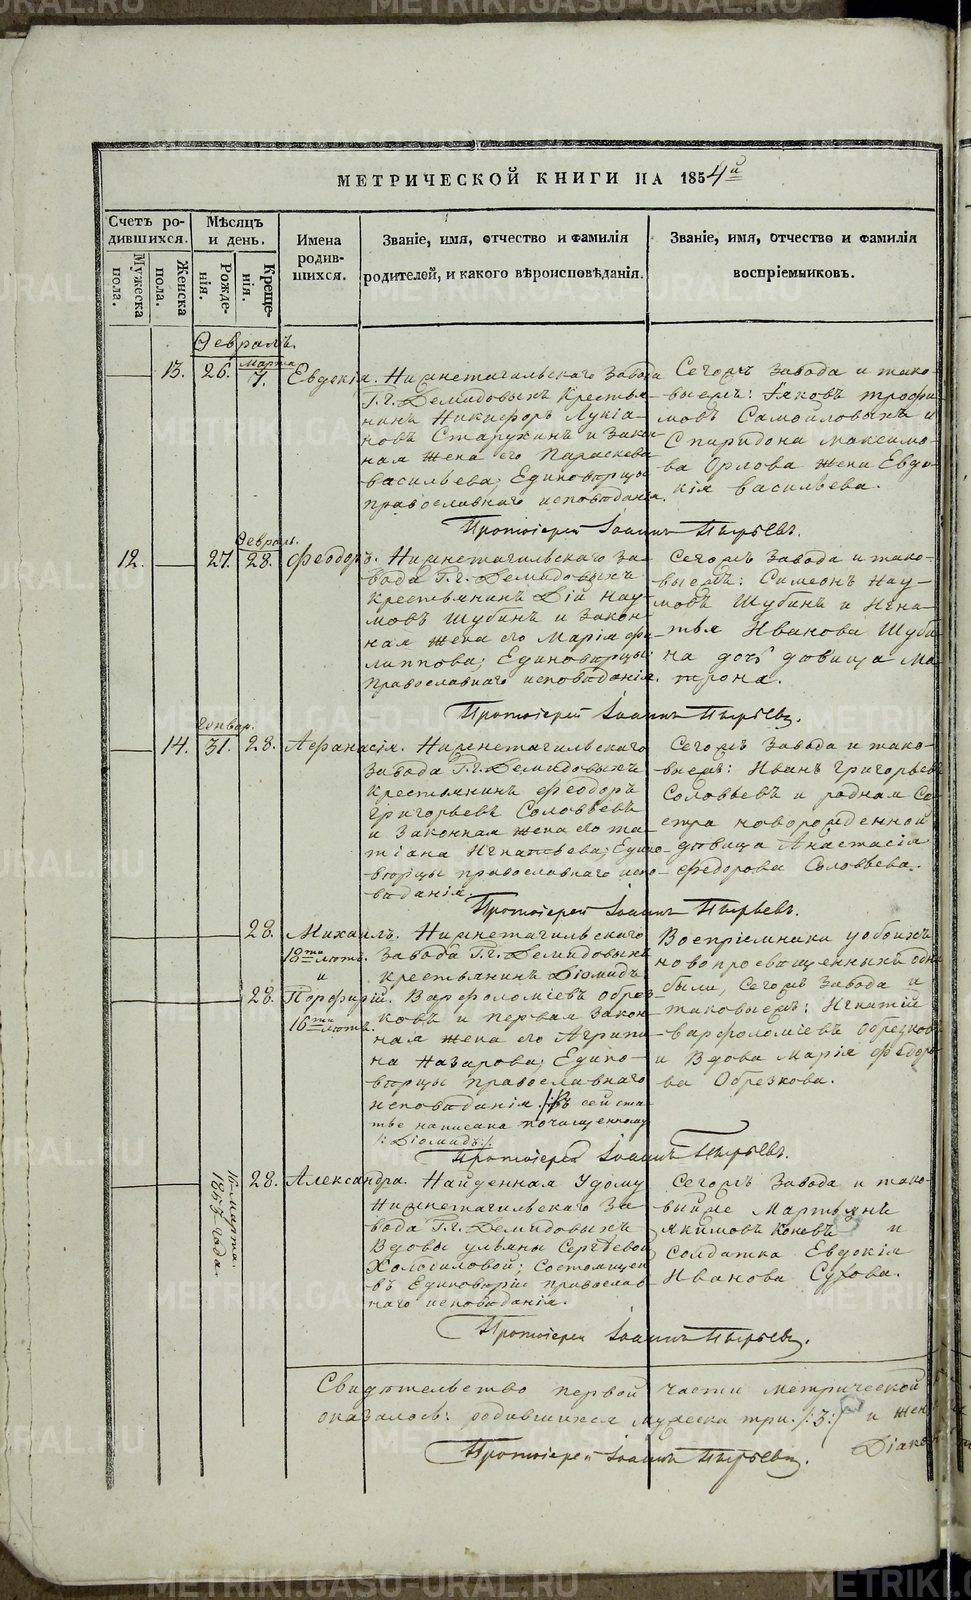 МЕТРИЧЕСКОЙ КНИГИ НА 1854й
Счетъ ро-
дившихся.
Мужеска
пола.
Женска
пола.
Мѣсяцъ
и день.
Рожде-
нія.
Креще-
нія.
Имена
родив-
шихся.
Званіе, имя, отчество и фамилія
родителей, и какого вѣроисповѣданія.
Званіе, имя, отчество и фамилія
воспріемниковъ.
Февраль.
13. 26. Марта 7. Евдокія.
Нижнетагильскаго завода
Г.г. Демидовыхъ крестья-
нинъ Никифоръ Лукіа-
новъ Старухинъ и закон-
ная жена его Параскева
Васильева; Единовѣрцы
православнаго исповѣданія.
Сегожъ завода и тако-
выежъ: Іаковъ Трофи-
мовъ Самойловыхъ и
Спиридона Максимо-
ва Орлова жена Евдо-
кія Васильева.
Протоіерей Іоаннъ Пырьевъ.
12. 27. Февраль. 28. Феодоръ.
Нижнетагильскаго за-
вода Г.г. Демидовыхъ
крестьянинъ Дій Нау-
мовъ Шубинъ и закон-
ная жена его Марія Фи-
липпова; Единовѣрцы
православнаго исповѣданія.
Сегожъ завода и тако-
выежъ: Симеонъ Нау-
мовъ Шубинъ и Игна-
тья Иванова Шуби-
на дочь дѣвица Ма-
трона.
Протоіерей Іоаннъ Пырьевъ.
14. Генвар. 31. 28. Афанасія.
Нижнетагильскаго
завода Г.г. Демидовыхъ
крестьянинъ Феодоръ
Григорьевъ Соловьевъ
и законная жена его Та-
тіана Игнатьева; Едино-
вѣрцы православнаго испо-
вѣданія.
Сегожъ завода и тако-
выежъ: Иванъ Григорьевъ
Соловьевъ и родная се-
стра новорожденной
дѣвица Анастасія
Федорова Соловьева.
Протоіерей Іоаннъ Пырьевъ.
28. Михаилъ.
18ти лѣтъ.
и
28. Порфирій.
16ти лѣтъ.
Нижнетагильскаго
завода Г.г. Демидовыхъ
крестьянинъ Діомидъ
Варфоломіевъ Обрез-
ковъ и первая закон-
ная жена его Агрипи-
на Назарова; Едино-
вѣрцы православнаго
исповѣданія. /:въ сей ста-
тьѣ написана почищенному
/:Діомидъ:/.
Воспріемники у обоихъ
новопросвѣщенныхъ одни
были, сегожъ завода и
таковыежъ: Игнатій
Варфоломіевъ Обрезковъ
и вдова Марія Федоро-
ва Обрезкова.
Протоіерей Іоаннъ Пырьевъ.
марта
1853 года.
28. Александра.
Найденная у дому
Нижнетагильскаго за-
вода Г.г. Демидовыхъ
вдовы Ульяны Сергѣевой
Холодиловой; состоящей
въ Единовѣріи православ-
наго исповѣданія.
Сегожъ завода и тако-
выйже Мартьянъ
Якимовъ Коневъ и
солдатка Евдокія
Иванова Сухова.
Протоіерей Іоаннъ Пырьевъ.
Свидѣтельство первой части метрической
оказалось: родившихся мужеска три /:3:/ и жен
Протоіерей Іоаннъ Пырьевъ. Діако
METRIKI.GASO-URAL.RU